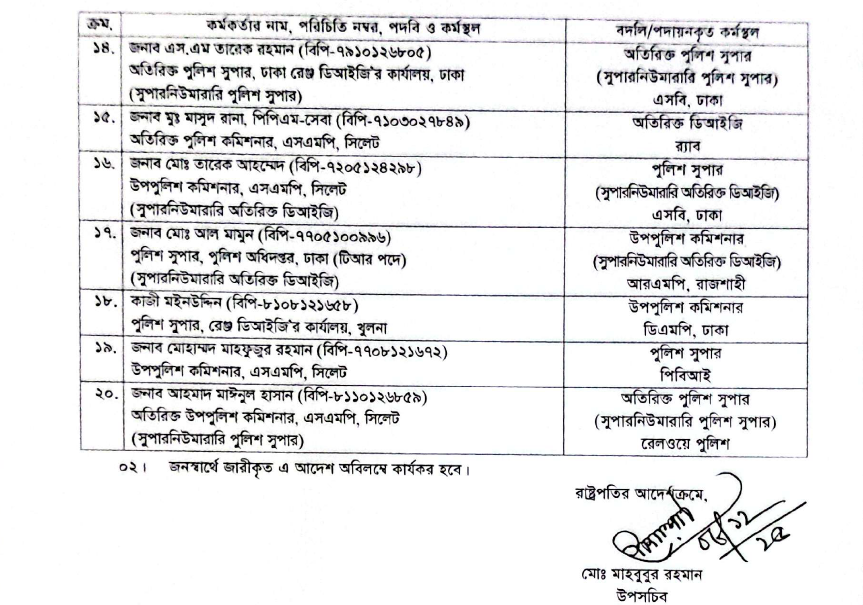 ক্রম. কর্মকর্তার নাম, পরিচিতি নম্বর, পদবি ও কর্মস্থল বদলি/পদায়নকৃত কর্মস্থল
১৪. জনাব এস.এম তারেক রহমান (বিপি-৭৯১০১২৬৮০৫) অতিরিক্ত পুলিশ সুপার
অতিরিক্ত পুলিশ সুপার, ঢাকা রেঞ্জ ডিআইজি'র কার্যালয়, ঢাকা (সুপারনিউমারারি পুলিশ সুপার)
(সুপারনিউমারারি পুলিশ সুপার) এসবি, ঢাকা
১৫. জনাব মুঃ মাসুদ রানা, পিপিএম-সেবা (বিপি-৭১০৩০২৭৮৪৯) অতিরিক্ত ডিআইজি
অতিরিক্ত পুলিশ কমিশনার, এসএমপি, সিলেট র‍্যাব
১৬. জনাব মোঃ তারেক আহমেদ (বিপি-৭২০৫১২৪২৯৮) পুলিশ সুপার
উপপুলিশ কমিশনার, এসএমপি, সিলেট (সুপারনিউমারারি অতিরিক্ত ডিআইজি)
(সুপারনিউমারারি অতিরিক্ত ডিআইজি) এসবি, ঢাকা
১৭. জনাব মোঃ আল মামুন (বিপি-৭৭০৫১০০৯৯৬) উপপুলিশ কমিশনার
পুলিশ সুপার, পুলিশ অধিদপ্তর, ঢাকা (টিআর পদে) (সুপারনিউমারারি অতিরিক্ত ডিআইজি)
(সুপারনিউমারারি অতিরিক্ত ডিআইজি) আরএমপি, রাজশাহী
১৮. কাজী মইনউদ্দিন (বিপি-৮১০৮১২১৬৫৮) উপপুলিশ কমিশনার
পুলিশ সুপার, রেঞ্জ ডিআইজি'র কার্যালয়, খুলনা ডিএমপি, ঢাকা
১৯. জনাব মোহাম্মদ মাহফুজুর রহমান (বিপি-৭৭০৮১২১৬৭২) পুলিশ সুপার
উপপুলিশ কমিশনার, এসএমপি, সিলেট পিবিআই
২০. জনাব আহমাদ মাঈনুল হাসান (বিপি-৮১১০১২৬৮৫৯) অতিরিক্ত পুলিশ সুপার
অতিরিক্ত উপপুলিশ কমিশনার, এসএমপি, সিলেট (সুপারনিউমারারি পুলিশ সুপার)
(সুপারনিউমারারি পুলিশ সুপার) রেলওয়ে পুলিশ
০২। জনস্বার্থে জারীকৃত এ আদেশ অবিলম্বে কার্যকর হবে।
রাষ্ট্রপতির আদেশক্রমে,
মোঃ মাহবুবুর রহমান
উপসচিব